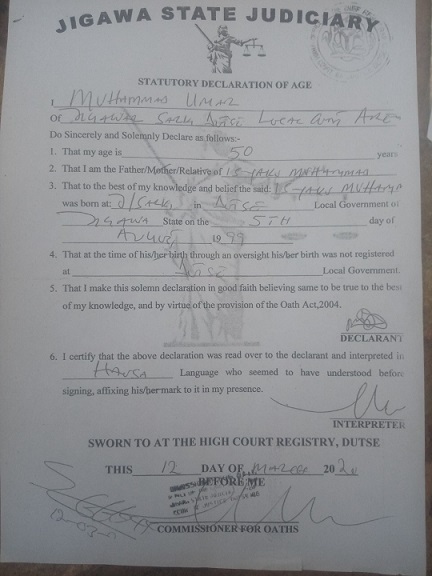 JIGAWA STATE JUDICIARY
STATUTORY DECLARATION OF AGE
I MUHAMMAD UMAR
Of JIGAWAR SARKI DUTSE LOCAL GOVT AREA
Do Sincerely and Solemnly Declare as follows:-
1. That my age is 50 years
2. That I am the Father/Mother/Relative of ISYAKU MUHAMMAD
3. That to the best of my knowledge and belief the said: ISYAKU MUHAMM
was born at: J/SARKI in DUTSE Local Government of
JIGAWA State on the 5TH day of
AUGUST 1999
4. That at the time of his/her birth through an oversight his/her birth was not registered
at DUTSE Local Government.
5. That I make this solemn declaration in good faith believing same to be true to the best
of my knowledge, and by virtue of the provision of the Oath Act,2004.
DECLARANT
6. I certify that the above declaration was read over to the declarant and interpreted in
HAUSA Language who seemed to have understood before
signing, affixing his/her mark to it in my presence.
INTERPRETER
SWORN TO AT THE HIGH COURT REGISTRY, DUTSE
THIS 12 DAY OF MARCH 2020
BEFORE ME
COMMISSIONER FOR OATHS